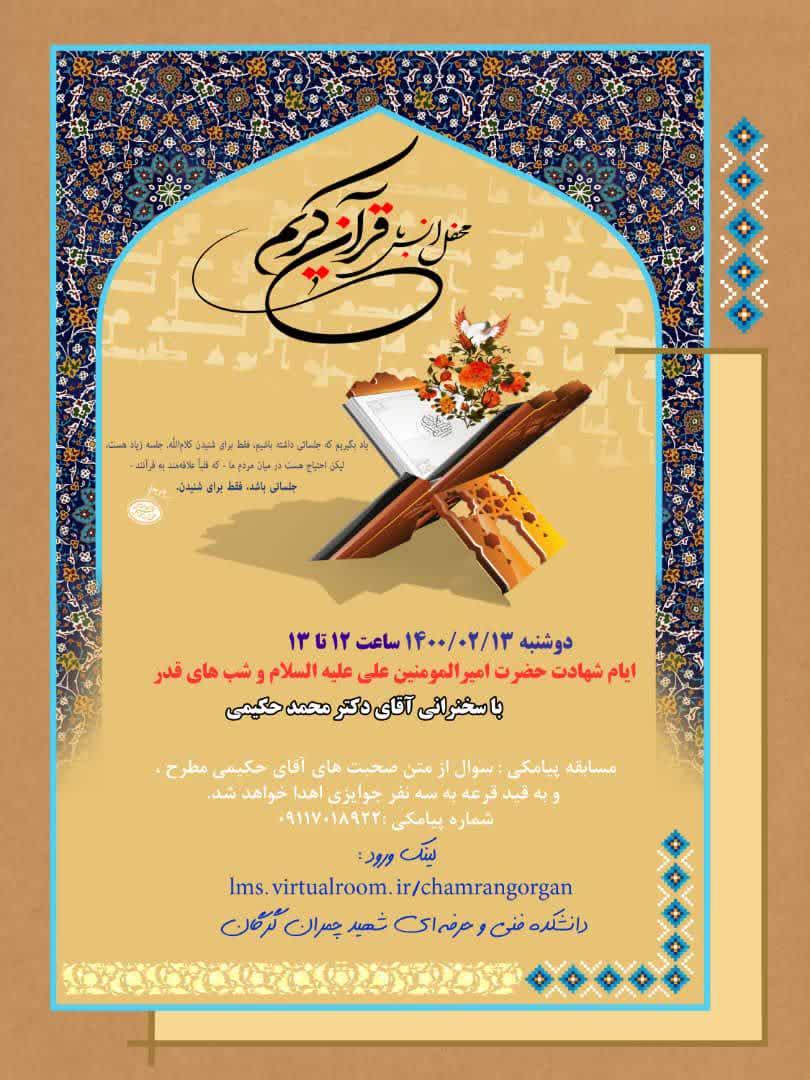 محفل انس با قرآن کریم
یاد بگیریم که جلساتی داشته باشیم، فقط برای شنیدن کلام‌اللّه. جلسه زیاد هست،
لیکن احتیاج هست در میان مردم ما - که قلباً علاقه‌مند به قرآنند -
جلساتی باشد، فقط برای شنیدن.
دوشنبه ۱۴۰۰/۰۲/۱۳ ساعت ۱۲ تا ۱۳
ایام شهادت حضرت امیرالمومنین علی علیه السلام و شب های قدر
با سخنرانی آقای دکتر محمد حکیمی
مسابقه پیامکی : سوال از متن صحبت های آقای حکیمی مطرح ،
و به قید قرعه به سه نفر جوایزی اهدا خواهد شد.
شماره پیامکی :۰۹۱۱۷۰۱۸۹۲۲
لینک ورود :
lms.virtualroom.ir/chamrangorgan
دانشکده فنی و حرفه‌ای شهید چمران گرگان